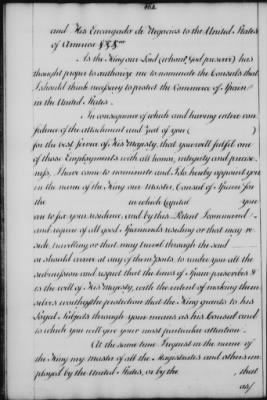 462
and His Encargado de Negocios to the United States
of America &&&
As the King our Lord (whom God preserve) has
thought proper to authorize me to nominate the Consuls that
I should think necessary to protect the Commerce of Spain
in the United States.
In consequence of which and having entire con-
fidence of the attachment and zeal of you ( )
for the best service of His Majesty, that you will fulfil one
of those Employments with all honor, integrity and precise-
ness, I have come to nominate and I do hereby appoint you
in the name of the King our Master, Consul of Spain for
the in which Capital you
are to fix your residence, and by this Patent I command
and require of all good Spaniards residing or that may re-
side, travelling or that may travel through the said
or should arrive at any of them ports, to render you all the
submission and respect that the laws of Spain prescribes &
is the will of His Majesty, with the intent of making them-
selves worthy of the protection that the King grants to his
Loyal Subjects through your means as his Consul and
to which you will give your most particular attention.
At the same time I request in the name of
the King my Master of all the Magistrates and others em-
ployed by the United States, or by the , that
as/